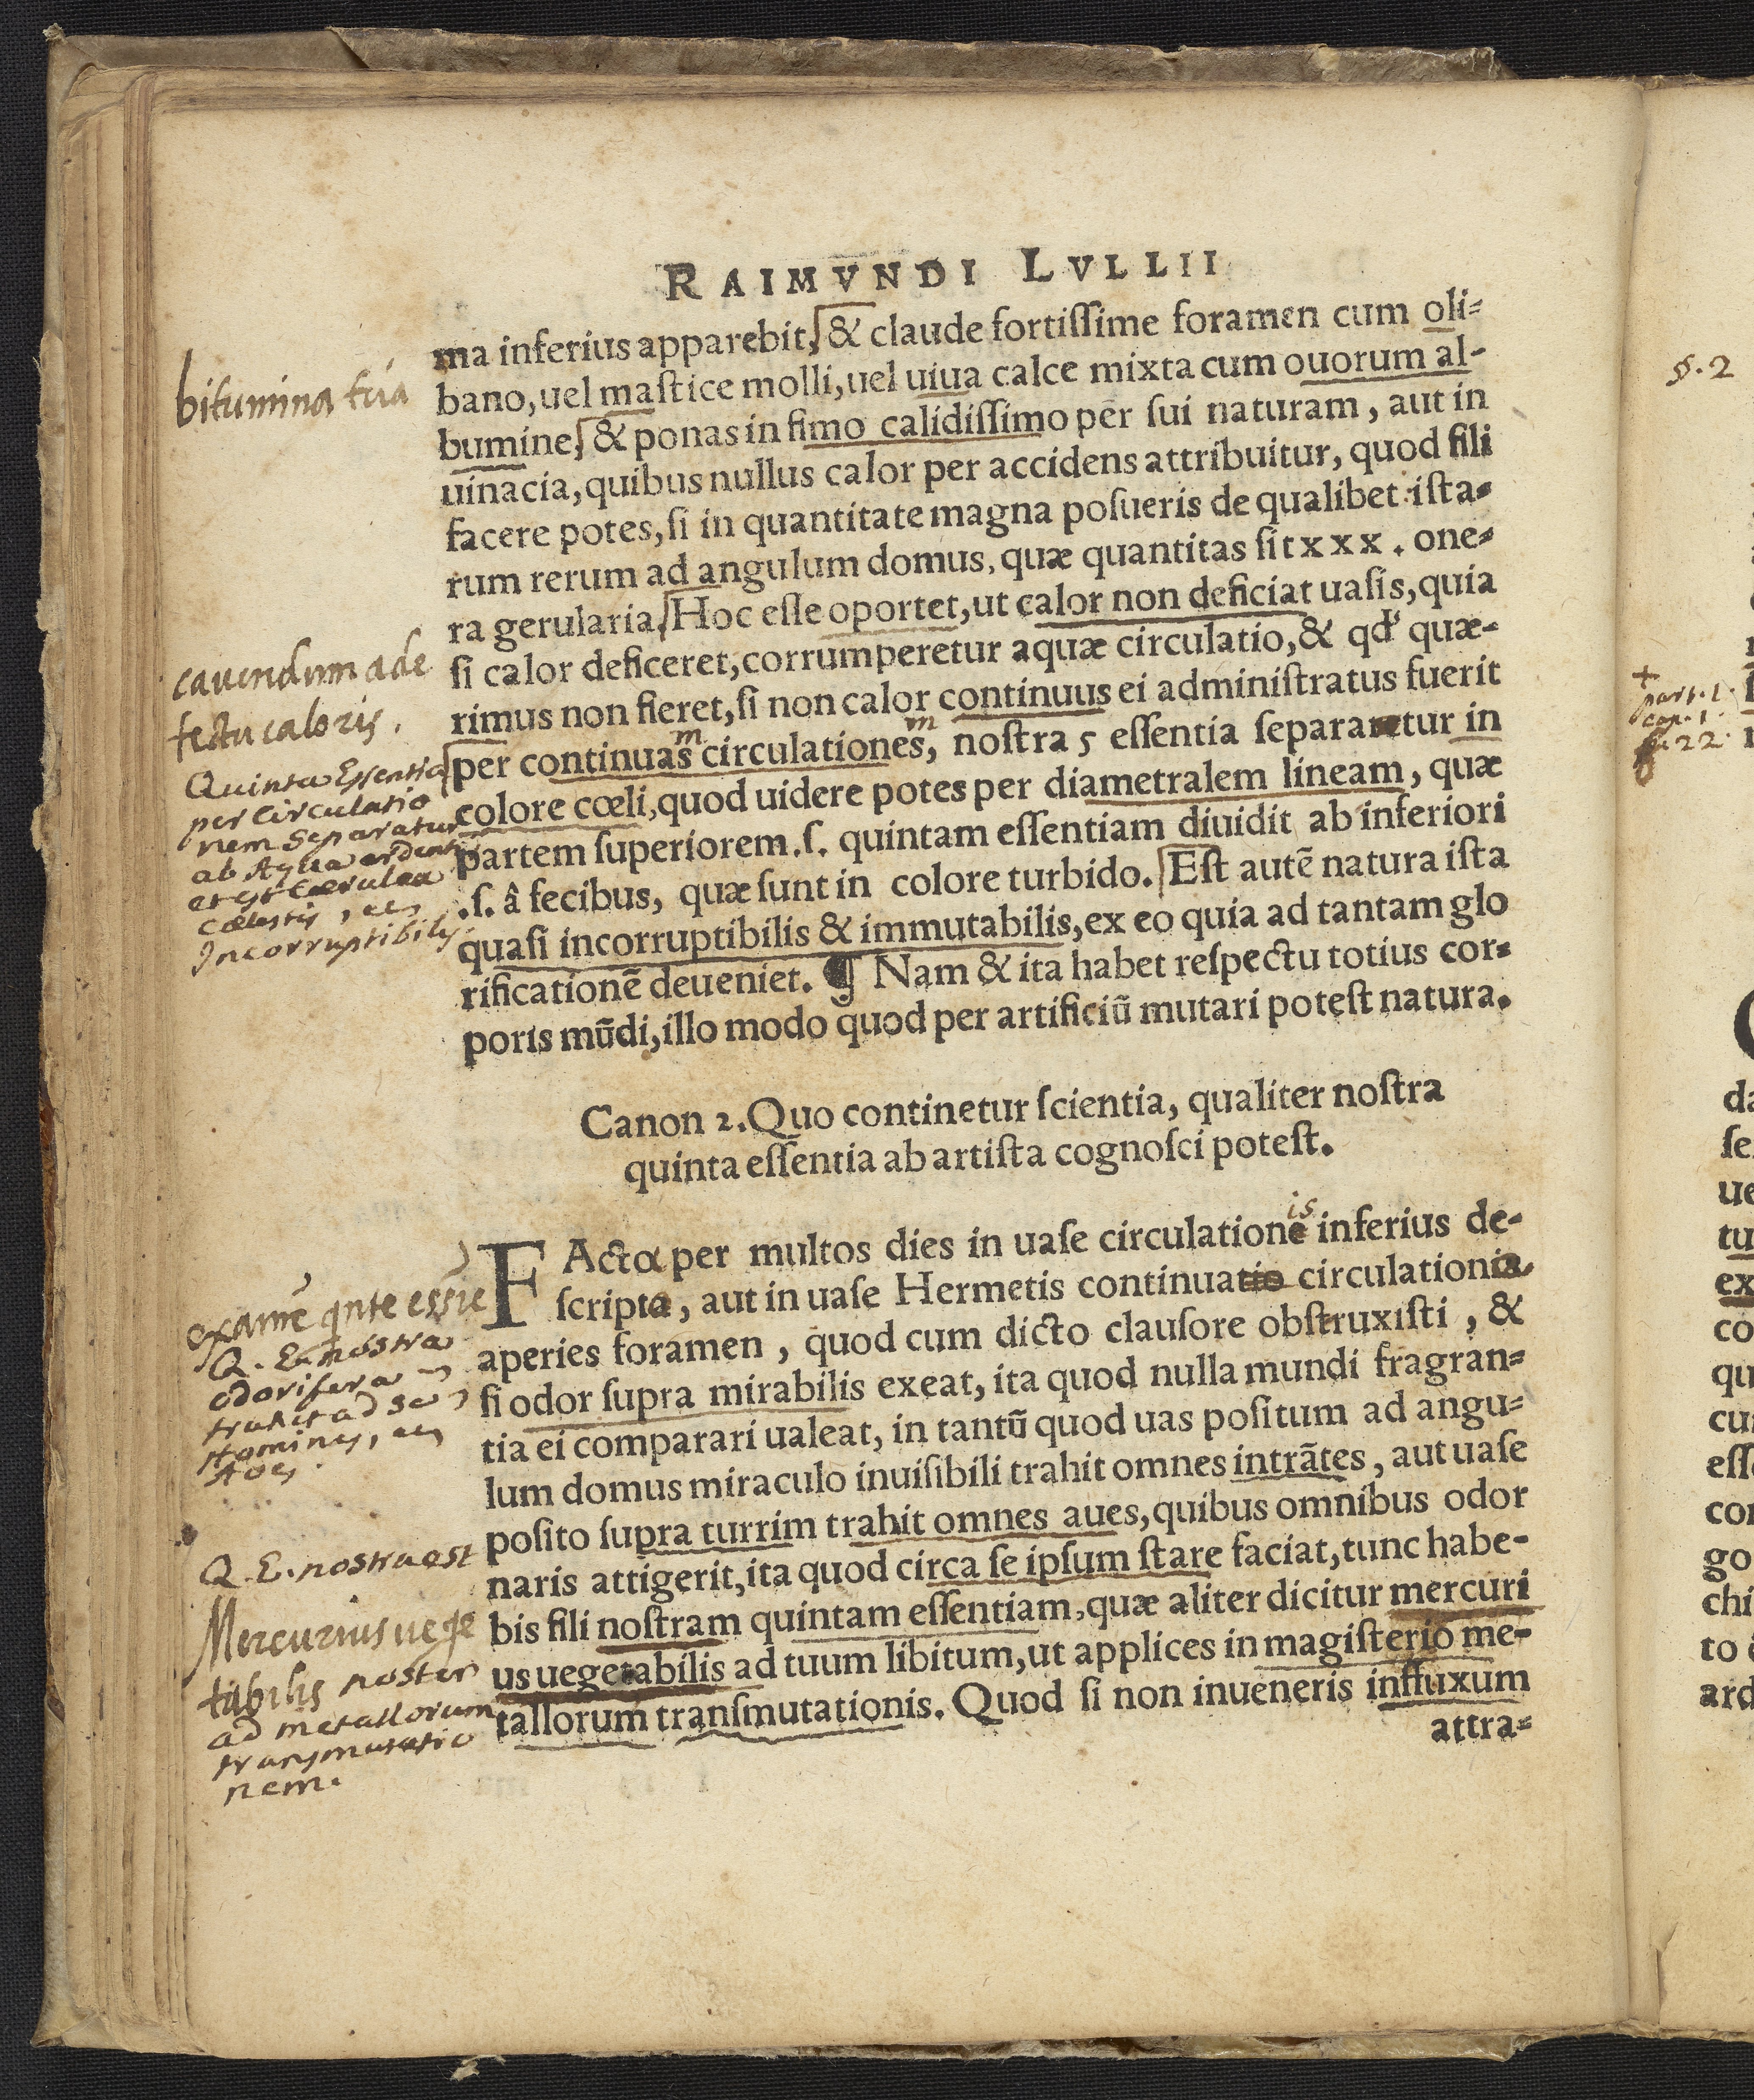 RAIMVNDI LVLLII
ma inferius apparebit, & claude fortiſſime foramen cum oli-
bano, uel maſtice molli, uel uiua calce mixta cum ouorum al-
bumine, & ponas in fimo calidiſſimo per ſui naturam, aut in
uinacia, quibus nullus calor per accidens attribuitur, quod fili
facere potes, ſi in quantitate magna poſueris de qualibet iſta-
rum rerum ad angulum domus, quæ quantitas ſit xxx. one-
ra gerularia. Hoc eſſe oportet, ut calor non deficiat uaſis, quia
ſi calor deficeret, corrumperetur aquæ circulatio, & qd' quæ-
rimus non fieret, ſi non calor continuus ei adminiſtratus fuerit
m m
per continuas circulationes, noſtra 5 eſſentia separaretur in
colore cœli, quod uidere potes per diametralem lineam, quæ
partem ſuperiorem .ſ. quintam eſſentiam diuidit ab inferiori
.ſ. â fecibus, quæ ſunt in colore turbido. Eſt autē natura iſta
quaſi incorruptibilis & immutabilis, ex eo quia ad tantam glo
rificationē deueniet. ¶ Nam & ita habet reſpectu totius cor-
poris mūdi, illo modo quod per artificiū mutari poteſt natura.
Canon 2. Quo continetur ſcientia, qualiter noſtra
quinta eſſentia ab artiſta cognoſci poteſt.
is
FActa per multos dies in uaſe circulatione inferius de-
ſcripta, aut in uaſe Hermetis continuatio circulationis
aperies foramen, quod cum dicto clauſore obſtruxiſti, &
ſi odor ſupra mirabilis exeat, ita quod nulla mundi fragran-
tia ei comparari ualeat, in tantū quod uas poſitum ad angu-
lum domus miraculo inuiſibili trahit omnes intrātes, aut uaſe
poſito ſupra turrim trahit omnes aues, quibus omnibus odor
naris attigerit, ita quod circa ſe ipſum ſtare faciat, tunc habe-
bis fili noſtram quintam eſſentiam, quæ aliter dicitur mercuri
us uegetabilis ad tuum libitum, ut applices in magiſterio me-
tallorum tranſmutationis. Quod ſi non inueneris influxum
attra-
bitumina tua
cauendum a de
fectu caloris.
Quinta Essentia
per Circulatio
nem Separatur
ab Aqua ardenti
et est Cærulea
cœlestis,
Incorruptibilis
examē qnte essie
Q. E. nostra
odorifera
trahit ad se
Homines,
Aues
Q. E. nostra est
Mercurius uege
tabilis noster
ad metallorum
transmutatio
nem.
§. 2
+
part. 1.
cap. 1.
22.
da
ſe
ue
tu
ex
co
qu
cu
eſſ
co
go
chi
to
ard